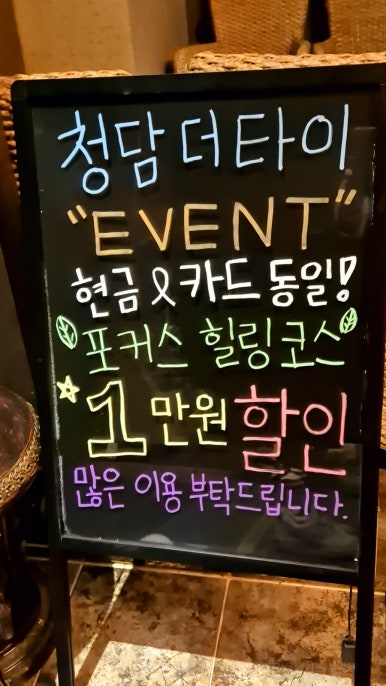 청담 더타이
"EVENT"
현금 & 카드 동일!
포커스 힐링코스
1만원 할인
많은 이용 부탁드립니다.